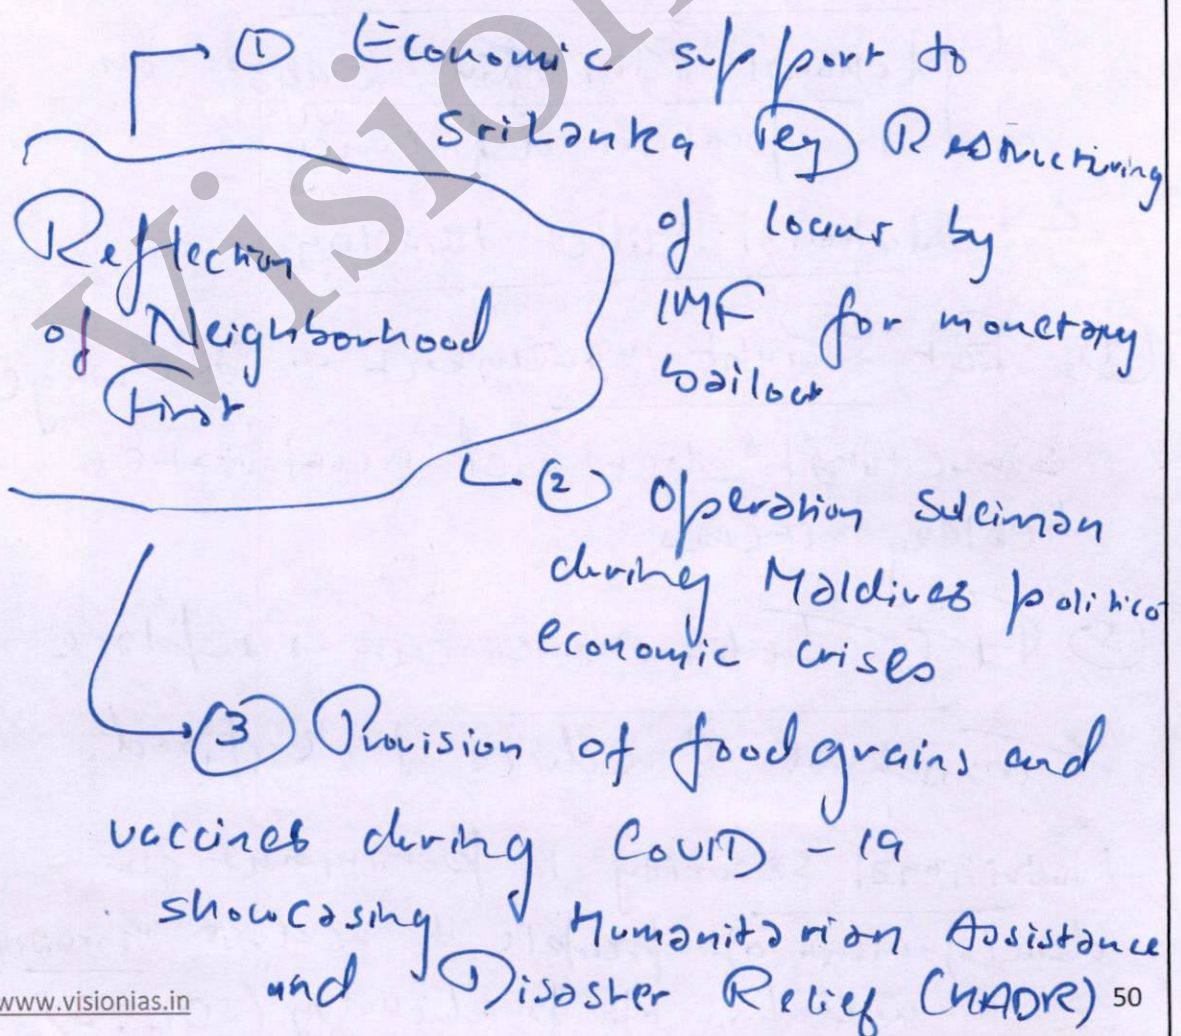 ① Economic support to
Srilanka (eg) Restructuring
of loans by
IMF for monetary
bailout
Reflection
of Neighborhood
First
② Operation Suleiman
during Maldives politico
economic crises
③ Provision of food grains and
vaccines during COVID-19
showcasing Humanitarian Assistance
and Disaster Relief (HADR)
www.visionias.in
50
Vision